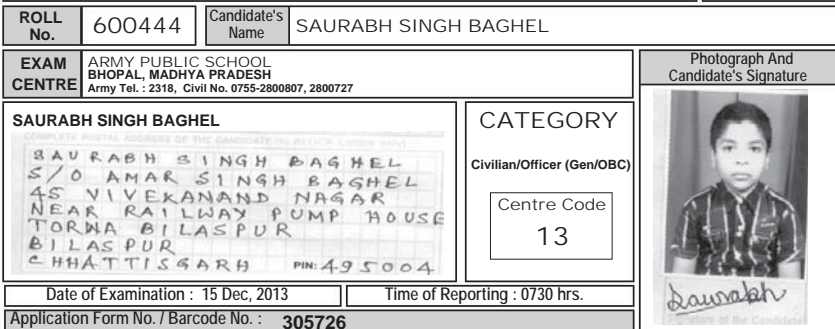 ROLL No.
600444
Candidate's Name
SAURABH SINGH BAGHEL
EXAM CENTRE
ARMY PUBLIC SCHOOL
BHOPAL, MADHYA PRADESH
Army Tel. : 2318, Civil No. 0755-2800807, 2800727
Photograph And
Candidate's Signature
SAURABH SINGH BAGHEL
COMPLETE POSTAL ADDRESS OF THE CANDIDATE (IN BLOCK LETTERS ONLY)
SAURABH SINGH BAGHEL
S/O AMAR SINGH BAGHEL
45 VIVEKANAND NAGAR
NEAR RAILWAY PUMP HOUSE
TORWA BILASPUR
BILASPUR
CHHATTISGARH PIN: 495004
CATEGORY
Civilian/Officer (Gen/OBC)
Centre Code
13
Saurabh
Signature of the Candidate
Date of Examination : 15 Dec, 2013
Time of Reporting : 0730 hrs.
Application Form No. / Barcode No. : 305726